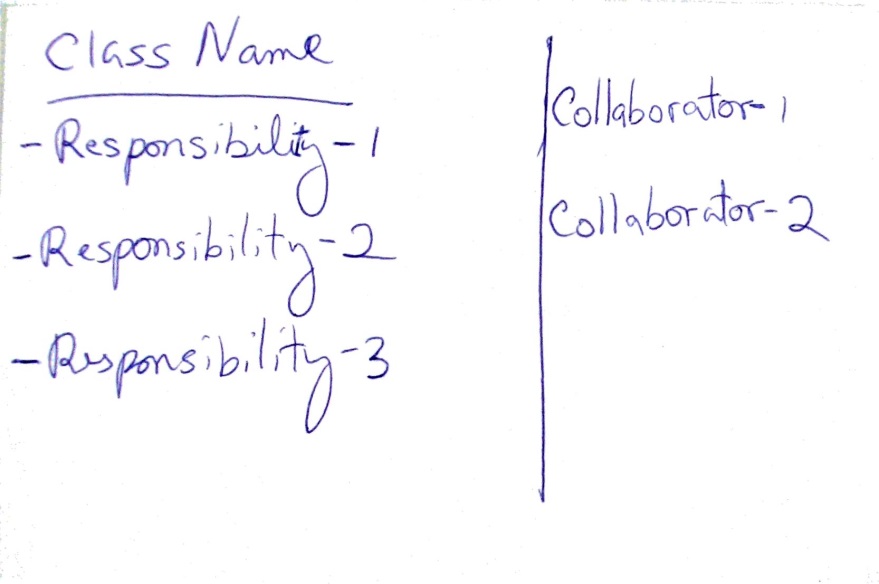 Class Name
- Responsibility-1
- Responsibility-2
- Responsibility-3
Collaborator-1
Collaborator-2